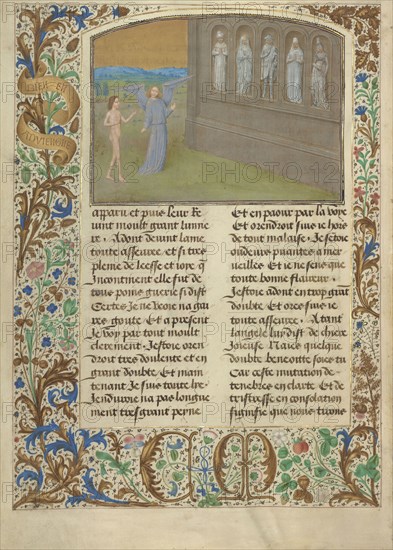 apparu et puis leur re
uint moult grant lumie
re. Adont deuint lame
toute asseuree et si tres
pleme de leesse et ioye qͥ
Incontinent elle fut de
tous poins guerie si dist
Certes Je ne veoie na gai
res goute. Et a present
Je voy par tout moult
clerement. Jestoie oren
droit tres doulente et en
grant doubte. Et main
tenant Je suis toute lye.
Jenduroie na pas longue
ment tresgrant peyne
Et en paour par la voye
Et orendroit suis ie hors
de tout malaise. Jestoie
ondeurs puantes a mer
ueilles Et ie ne sens que
toute bonne flaireur.
Jestoie adont en trop grant
doubte. Et ores suis ie
toute asseuree. A tant
langele luy dist. de chiere
Joieuse Naies quelque
doubte benoitte soies tu
Car ceste mutation de
tenebres en clarte. Et de
tristresse en consolation
signifie que nous tirons